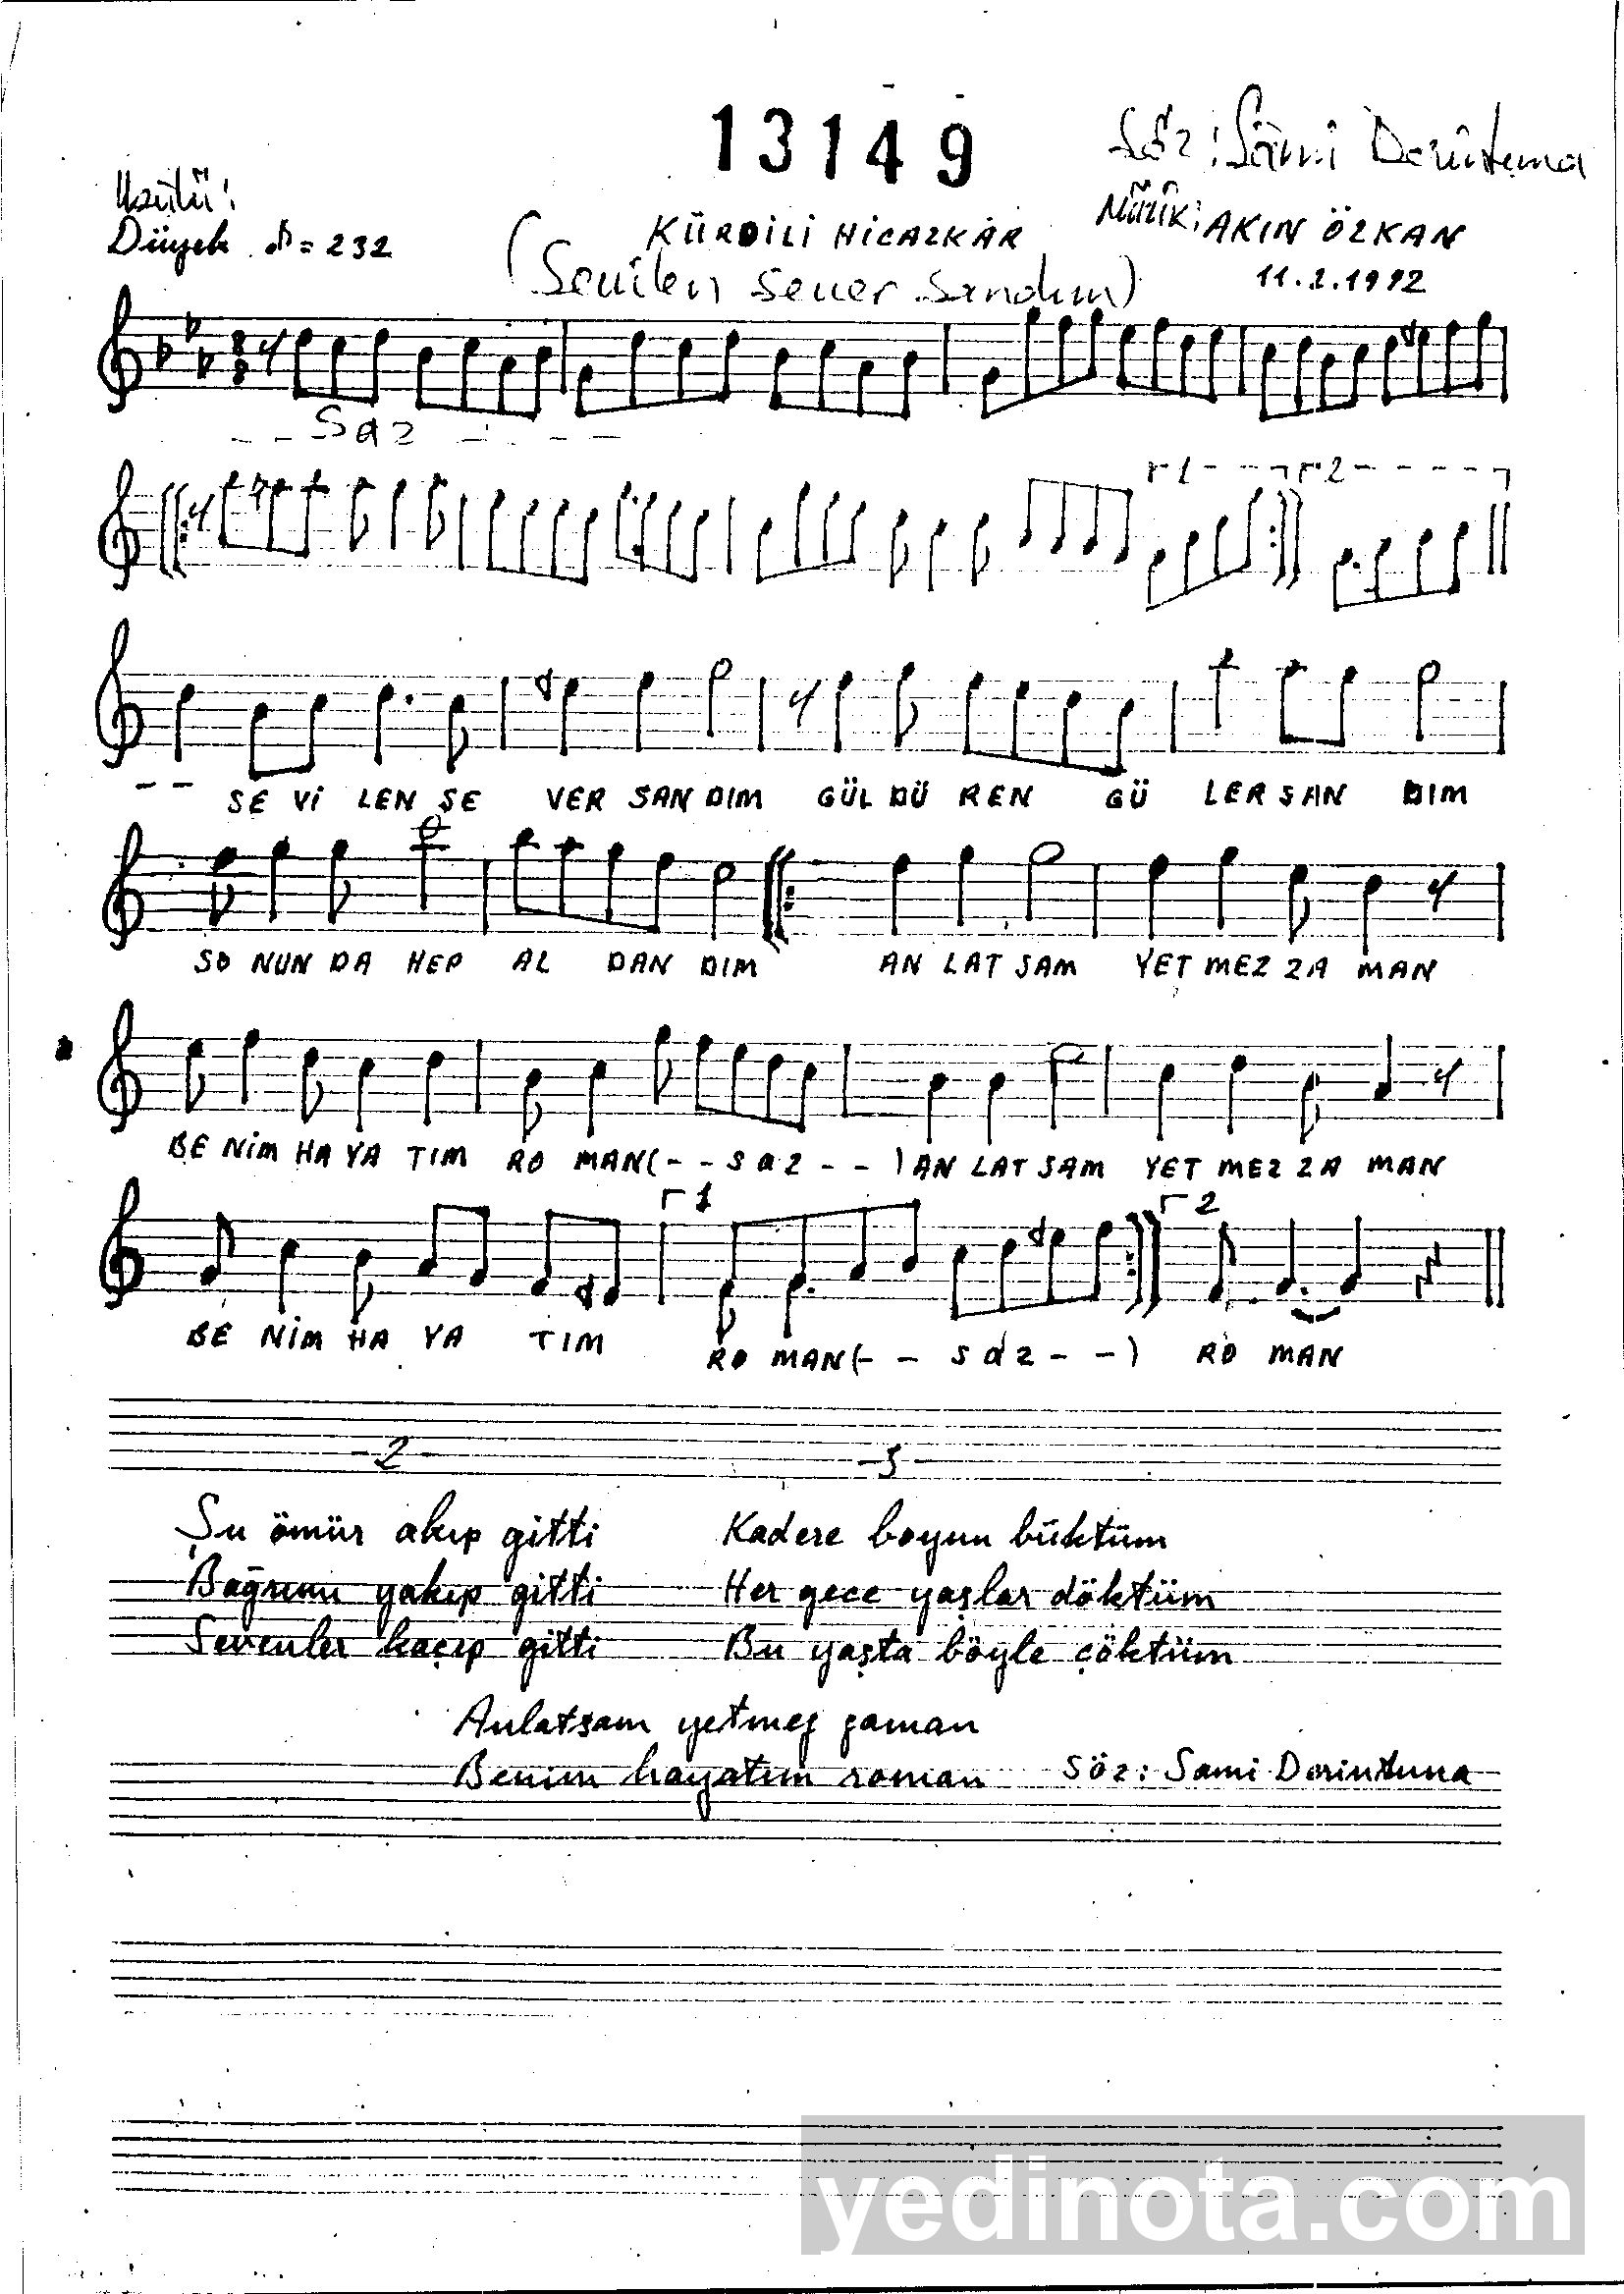 13149
Söz: Sâmi Derintuna
Usûlü:
Düyek = 232
KÜRDİLİ HİCAZKÂR
Müzik: AKIN ÖZKAN
(Sevilen Sever Sandım)
11.2.1992
8
8
--Saz----
1 2
-- SE Vİ LEN SE VER SAN DIM GÜL DÜ REN GÜ LER SAN DIM
SO NUN DA HEP AL DAN DIM AN LAT SAM YET MEZ ZA MAN
BE NİM HA YA TIM RO MAN(--saz--) AN LAT SAM YET MEZ ZA MAN
1 2
BE NİM HA YA TIM RO MAN(--saz--) RO MAN
-2-
Şu ömür akıp gitti
Bağrımı yakıp gitti
Sevenler kaçıp gitti
-3-
Kadere boyun büktüm
Her gece yaşlar döktüm
Bu yaşta böyle çöktüm
Anlatsam yetmez zaman
Benim hayatım roman
Söz: Sami Derintuna
yedinota.com